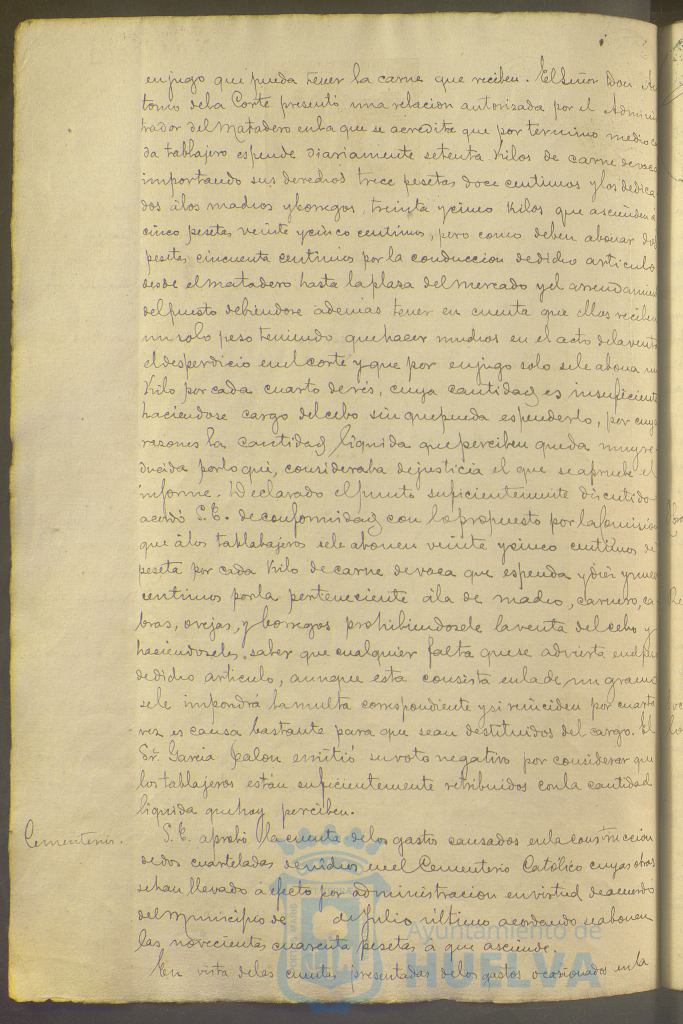 enjugo que pueda tener la carne que reciben. El Señor Don An
tonio dela Corte presentó una relacion autorizada por el Admins
trador del Matadero enla que se acredita que por termino medio ca
da tablajero espende diariamente setenta Kilos de carne devaca
importando sus derechos trece pesetas doce centimos y los dedica
dos álos machos y borregos, treinta ycinco Kilos que ascienden a
cinco pesetas veinte ycinco centimos, pero como deben abonar dos
pesetas cincuenta centimos por la conduccion dedicho articulo
desde el matadero hasta la plaza del mercado y el arrendamien
del puesto debiendose ademas tener en cuenta que ellos reciben
un solo peso teniendo que hacer muchos en el acto delaventa
el desperdicio en el corte y que por enjugo solo sele abona un
Kilo por cada cuarto derés, cuya cantidad es insuficiente
haciendose cargo del cebo sin que pueda espenderlo, por cuyas
razones la cantidad liquida que perciben queda muy re
ducida por lo que, consideraba dejusticia el que se apruebe el
informe. Declarado el punto suficientemente discutido
acordó S.E. deconformidad con lo propuesto por la Comision
que álos tablabajeros sele abonen veinte ycinco centimos de
peseta por cada Kilo de carne devaca que espenda y diez y nueve
centimos por la perteneciente ála de macho, carnero, ca
bras, ovejas, y borregos prohibiendosele laventa del cebo y
haciendoseles saber que cualquier falta que se advierta enel peso
dedicho articulo, aunque esta consista enla de un gramo
sele impondrá la multa correspondiente y si reinciden por cuarta
vez es causa bastante para que sean destituidos del cargo. El
Sr. Garcia Jalon emitió suvoto negativo por considerar que
los tablajeros están suficientemente retribuidos con la cantidad
liquida que hoy perciben.
Cementerio. S.E. aprobó la cuenta delos gastos causados enla construccion
dedos cuarteladas denichos en el Cementerio Católico cuyas obras
se han llevado á efecto por administracion envirtud deacuerdo
del Municipio de de Julio último acordando se abonen
las novecientas cuarenta pesetas á que asciende.
En vista delas cuentas presentadas delos gastos ocasionados en la
Ayuntamiento de
HUELVA